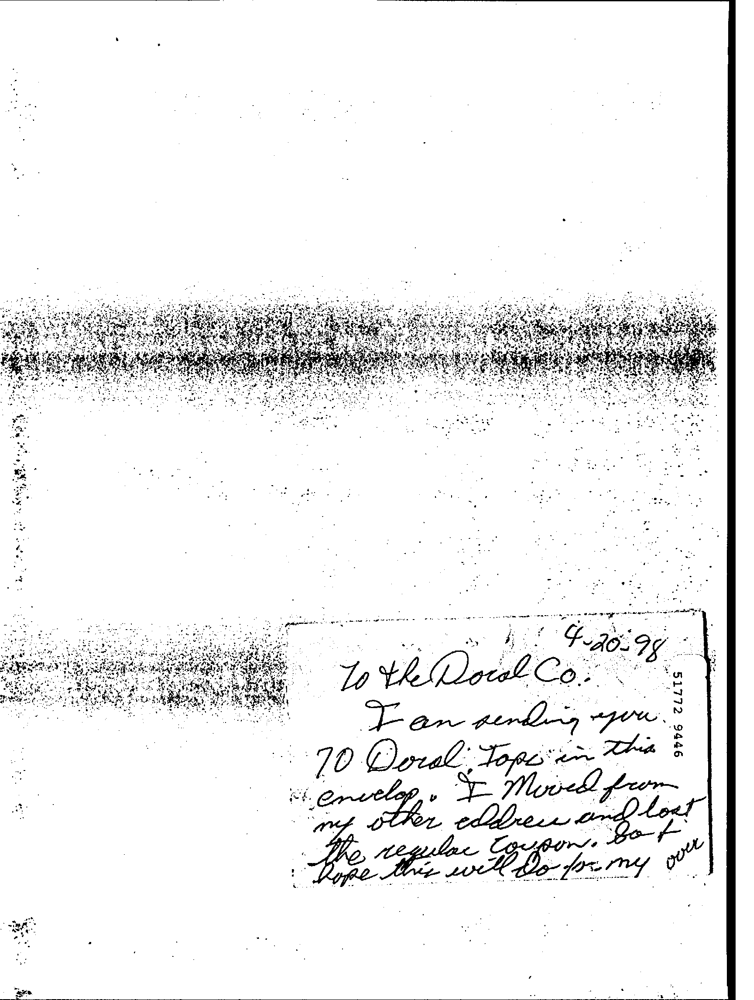 4-20-98
To the Doral Co.
I an sending you
70 Doral Tops in this
envelop. I Moved from
my other eddress and lost
the regular Coupon. So I
hope this will Do for my
over
51772 9446